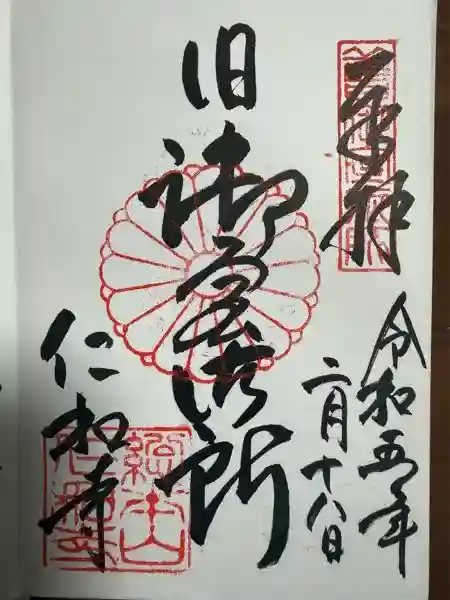 奉拝
令和五年
二月十八日
旧御室御所
仁和寺
總本山
仁和寺